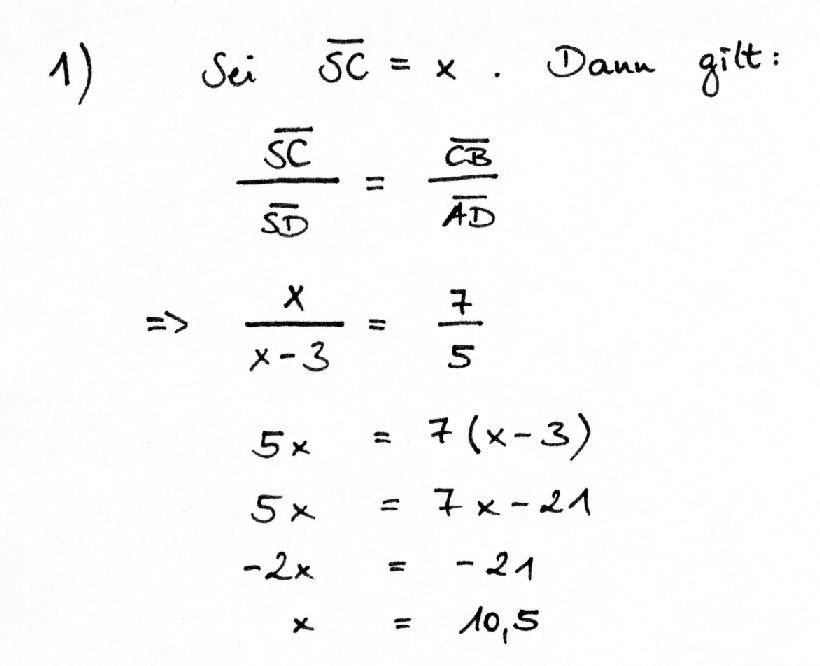 1) Sei \overline{SC} = x . Dann gilt:
\frac{\overline{SC}}{\overline{SD}} = \frac{\overline{CB}}{\overline{AD}}
=> \frac{x}{x-3} = \frac{7}{5}
5x = 7(x-3)
5x = 7x-21
-2x = -21
x = 10,5